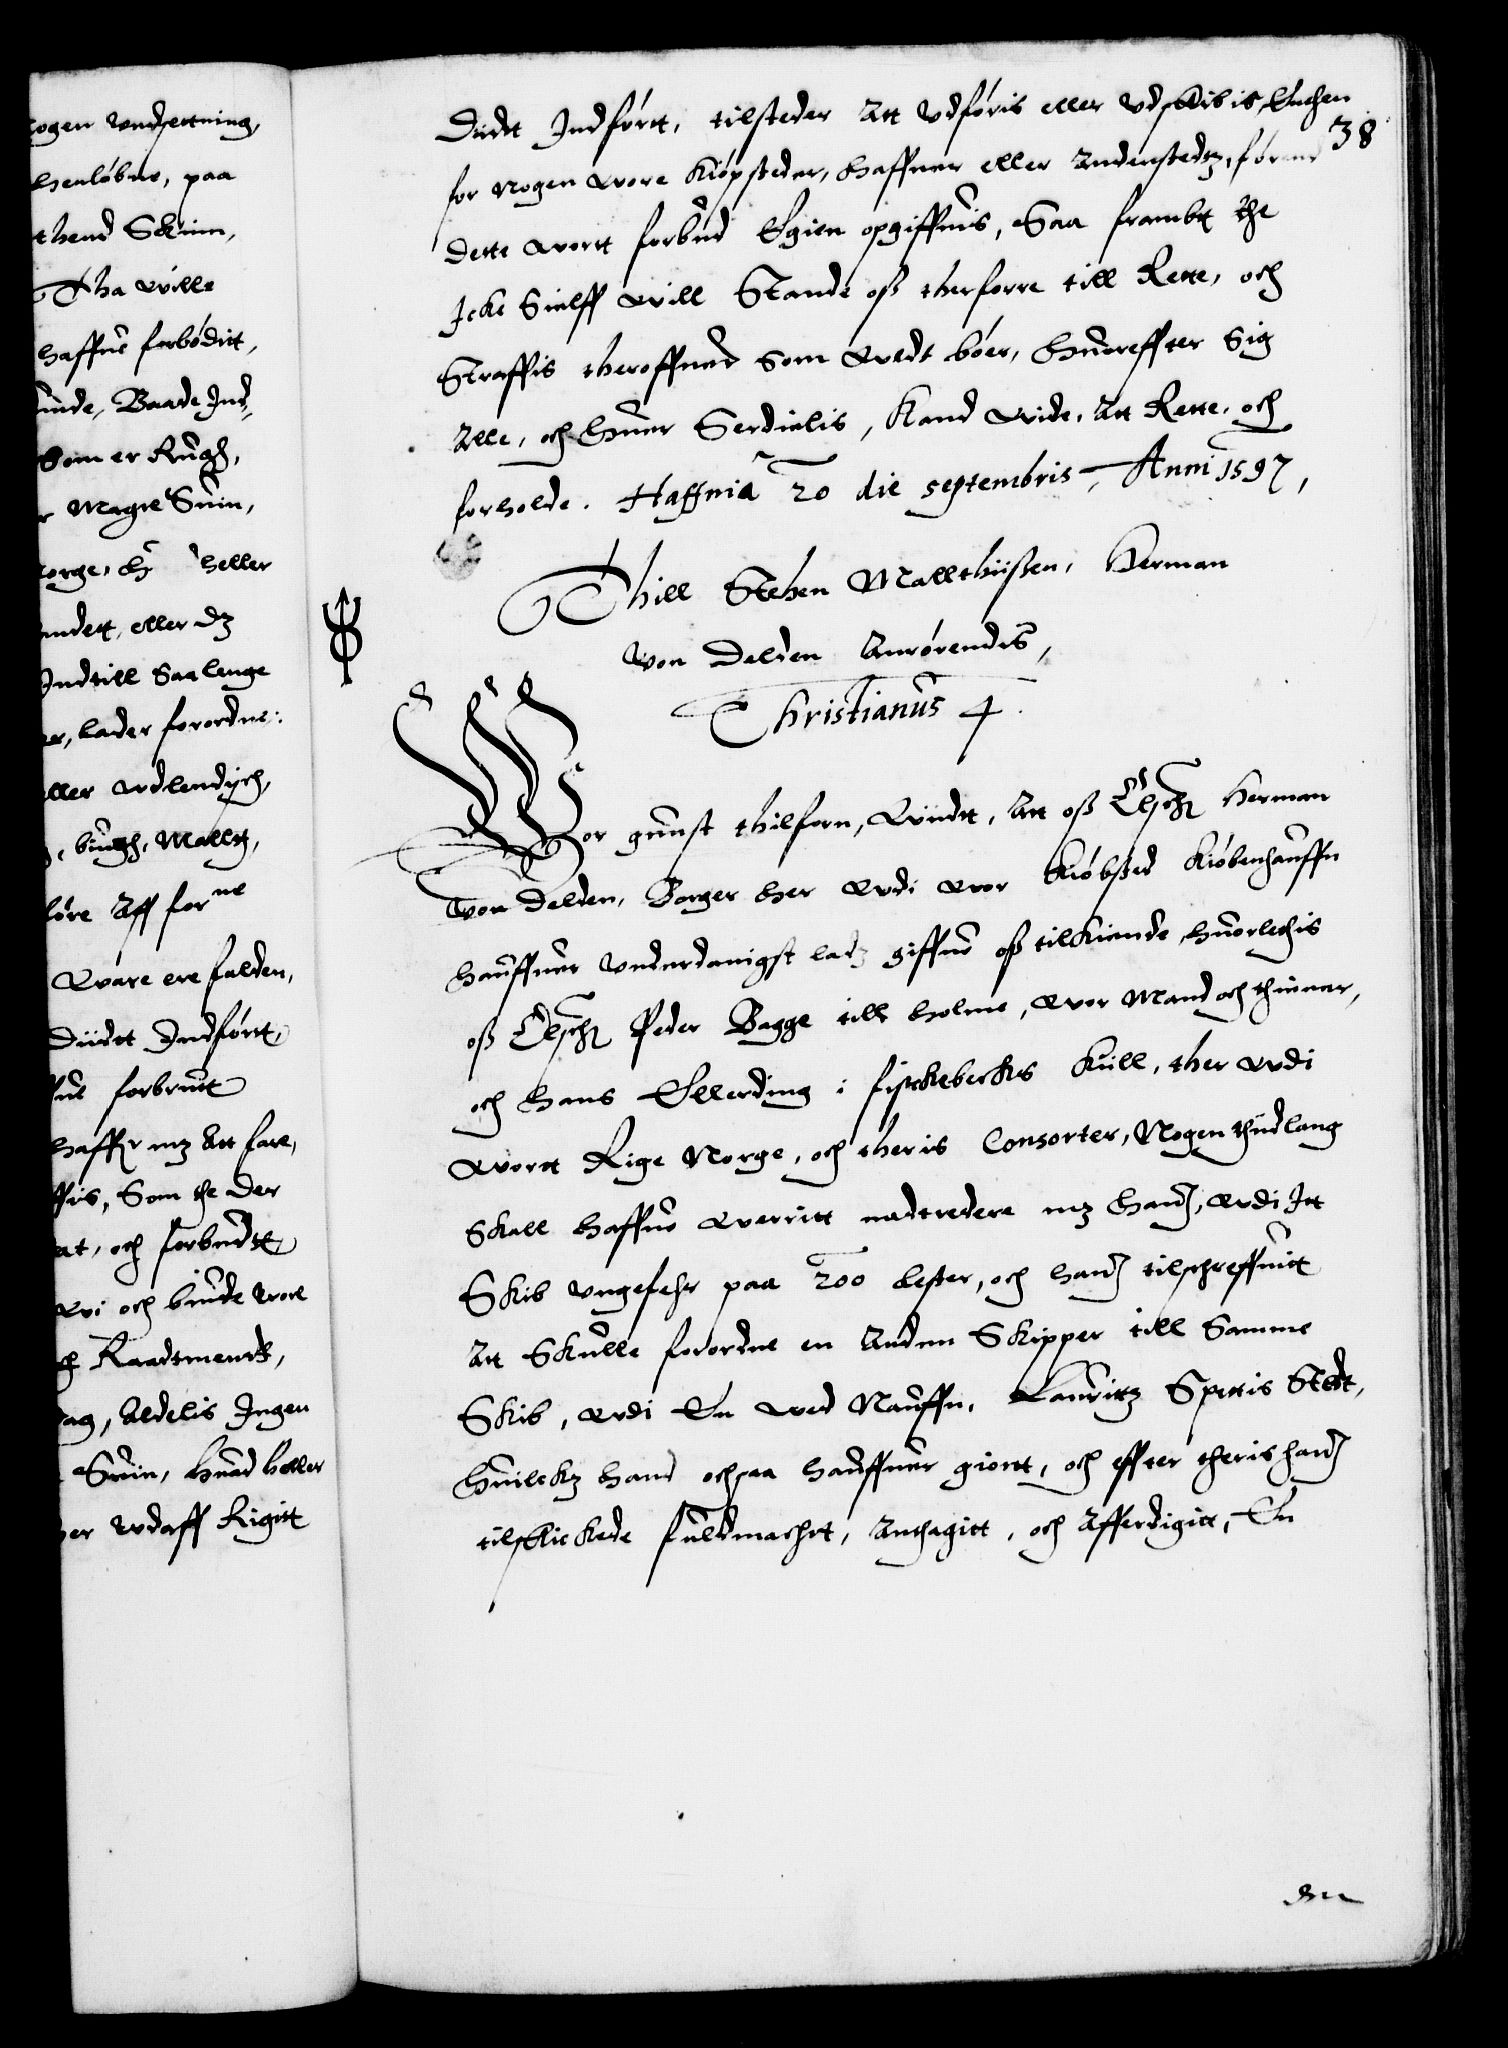 ogen undsettning,
henløbne, paa
thend Skinn,
Tha wille
haffue forbøditt,
unde, Baade Ind,
Som er Rugh,
Magre Suin,
orge, heller
ndett, eller dz
Indtill Saa lenge
er, lader forordne:
ller wdlendisch,
biugh, Malltt,
føre Aff forne
Ware ere falden,
Diidt Indførtt,
ne forbrutt
haffr mz Att fare,
ffis, Som the der
at, och forbudtt
Wi och biude wore
Raadtmendt,
dag, Aldelis Ingen
Suin, huad heller
er wdaff Rigitt
38
Diidt Indførtt, tilsteder Att Udføris eller Udskibis, Enthen
for Nogen wore Kiøpsteder, haffner eller Andenstedtz, førend
dette wortt forbud Egien opgiffuis, Saa frambt the
Icke Sielff will Stande oss therforre till Rette, och
Straffis theroffuer Som wedt bøer, Huoreffter Sig
Alle, och Huer Serdielis, Kand wide, Att Rette, och
forholde. Haffnia 20 die septembris, Anni 1597,
Thill Stehen Mallthiissen, Herman
von Delden Anrørendis,
Christianus 4.
Wor gunst thilforn, Wiidt, Att oss Elsch: Herman
von Delden, Borger her wdi wor Kiøbsted Kiøbenhauffn
hauffuer underdanigst ladz giffue oss tilkiende, huorledis
oss Elsch: Peder Bagge till holme, wor Mand och thiener,
och Hans Ellerding i fisckebecks Kiill, ther wdi
wortt Rige Norge, och theris Consorter, Nogen thiidlang
Skall haffue werritt medredere mz hand, wdi Itt
Skib ungefehr paa 200 lester, och hand tilschreffuitt
Att Skulle forordne en Anden Skipper till Samme
Skib, wdi En wed Nauffn, Lauritz Spettis Stedt,
huilckz hand ochsaa hauffuer giortt, och effter theris hand
tilskickede fuldmachtt, Anthagitt, och Afferdigitt, En